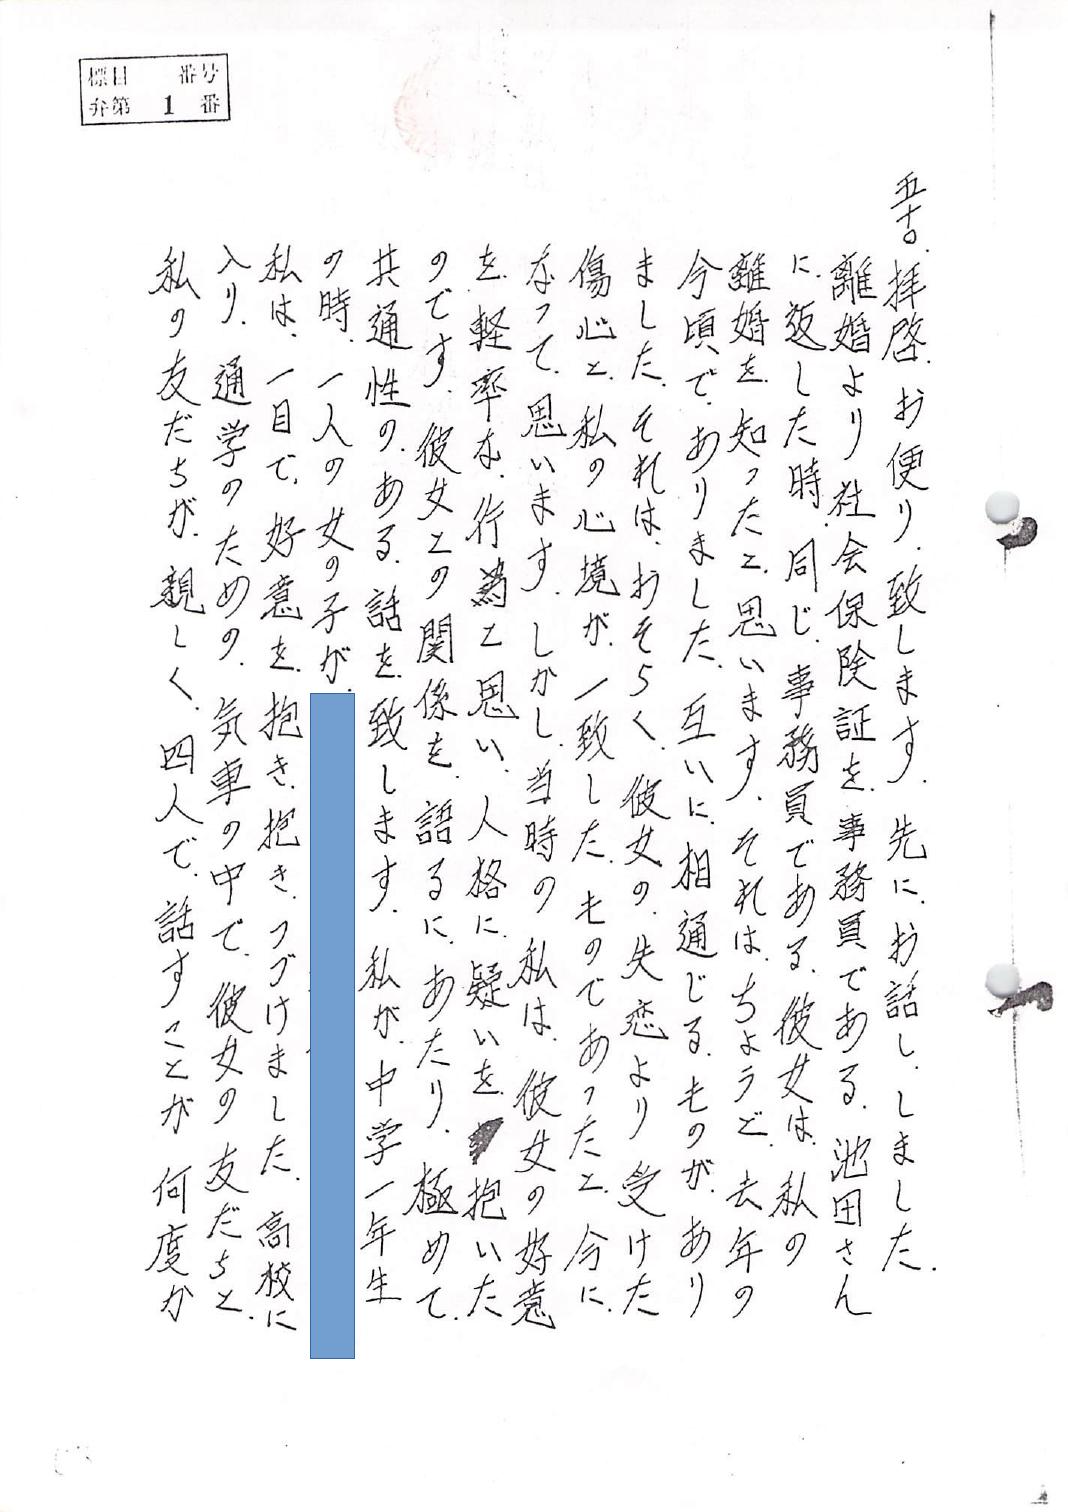 標目 番号
弁第 1 番
拝啓.お便り.致します.先に.お話し.しました.
離婚より社会保険証を.事務員である.池田さん
に.返した時.同じ.事務員である.彼女は.私の
離婚を.知ったと.思います.それは.ちょうど.去年の
今頃で.ありました.互いに.相通じる.ものが.あり
ました.それは.おそらく.彼女の.失恋より受けた
傷心と.私の心境が.一致した.ものであったと.今に.
なって.思います.しかし.当時の私は.彼女の好意
を.軽率な.行為と思い.人格に.疑いを.抱いた
のです.彼女との関係を.語るに.あたり.極めて.
共通性の.ある.話を.致します.私が.中学一年生
の時.一人の女の子が.
私は.一目で.好意を.抱き.抱き.つづけました.高校に
入り.通学のための.気車の中で.彼女の友だちと.
私の友だちが.親しく.四人で.話すことが何度か